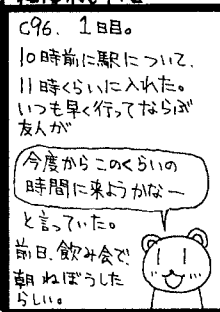 C96、1日目。
10時前に駅について、
11時くらいに入れた。
いつも早く行ってならぶ
友人が
今度からこのくらいの
時間に来ようかなー
と言っていた。
前日、飲み会で
朝ねぼうした
らしい。